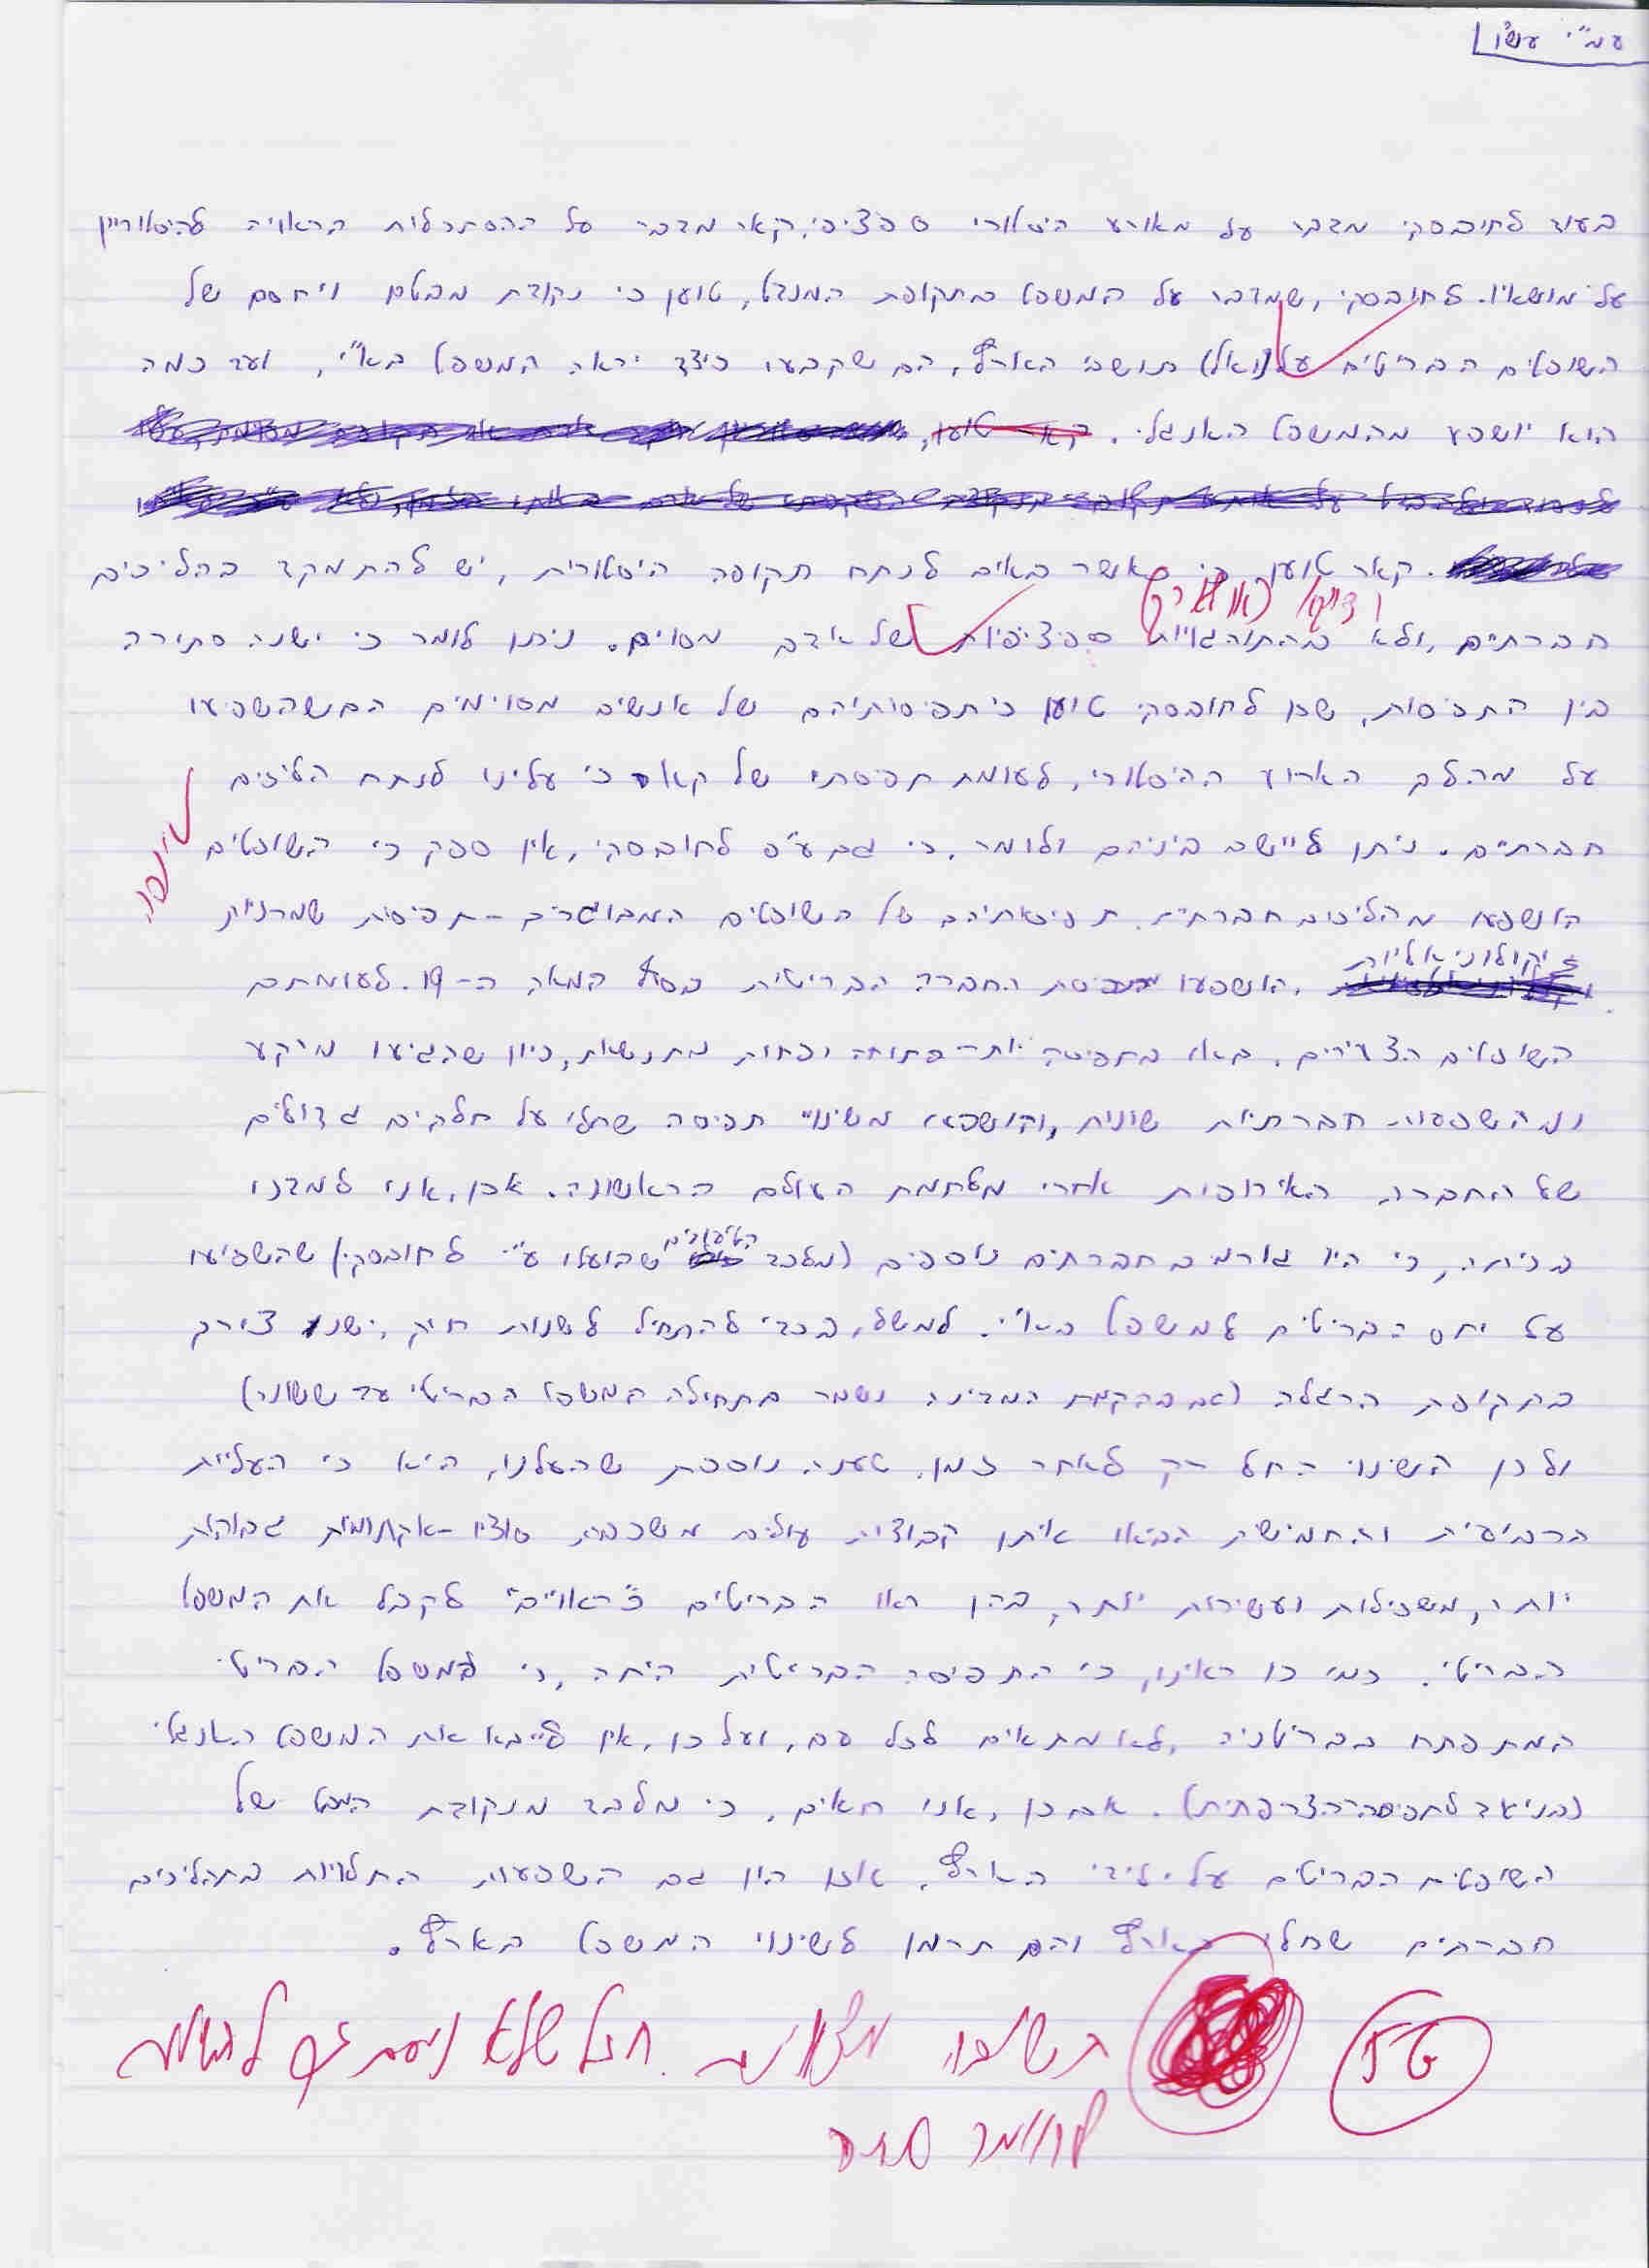 עמ"י עש"ו
בעוד לחובסקי מדבר על מאורע היסטורי ספציפי, קאר מדבר על ההסתכלות הראויה להיסטוריון
על מושאיו. לחובסקי, שמדבר על המשפט בתקופת המנדט, טוען כי נקודת מבטם ויחסם של
השופטים הבריטים על (ואל) תושבי הארץ, הם שקבעו כיצד יראה המשפט בא"י, ועד כמה
הוא יושפע מהמשפט האנגלי. קאר טוען,
קאר טוען כי כאשר באים לנתח תקופה היסטורית, יש להתמקד בהליכים
חברתיים, ולא בהתנהגויות ספציפיות של אדם מסוים. ניתן לומר כי ישנה סתירה
בין התפיסות, שכן לחובסקי טוען כי תפיסותיהם של אנשים מסוימים הם שהשפיעו
על מהלך הארוע ההיסטורי, לעומת תפיסתו של קאר כי עלינו לנתח הליכים
חברתיים. ניתן ליישב ביניהם ולומר, כי גם ע"פ לחובסקי, אין ספק כי השופטים
יפה
הושפעו מהליכים חברתיים. תפיסותיהם של השופטים המבוגרים - תפיסות שמרניות
וקולוניאליות
, הושפעו מתפיסת החברה הבריטית בסוף המאה ה-19. לעומתם
השופטים הצעירים, באו בתפיסה יותר פתוחה ופחות מתנשאת, כיוון שהגיעו מרקע
ומהשפעות חברתיות שונות, והושפעו משינויי תפיסה שחלו על חלקים גדולים
של החברה האירופית אחרי מלחמת העולם הראשונה. אכן, אנו למדנו
בכיתה, כי היו גורמים חברתיים נוספים (מלבד הטיעונים שהועלו ע"י לחובסקי) שהשפיעו
על יחס הבריטים למשפט בא"י. למשל, בכדי להתחיל לשנות חוק, ישנו צורך
בתקופת הרגלה (גם בהקמת המדינה נשמר בתחילה המשפט הבריטי עד ששונה)
ולכן השינוי החל רק לאחר זמן. טענה נוספת שהעלנו, היא כי העליות
הרביעית והחמישית הביאו איתן קבוצות עולים משכבות סוציו-אקונומיות גבוהות
יותר, משכילות ועשירות יותר, בהן ראו הבריטים כ"ראויים" לקבל את המשפט
הבריטי. כמו כן ראינו, כי התפיסה הבריטית היתה, כי המשפט הבריטי
המתפתח בבריטניה, לא מתאים לכל עם, ועל כן, אין לייבא את המשפט האנגלי
(בניגוד לתפיסה הצרפתית). אם כן, אנו רואים, כי מלבד מנקודת המבט של
השופטים הבריטים על ילידי הארץ, אכן היו גם השפעות התלויות בתהליכים
חברתיים שחלו בארץ והם תרמו לשינוי המשפט בארץ.
תשובה מצוינת. חבל שלא